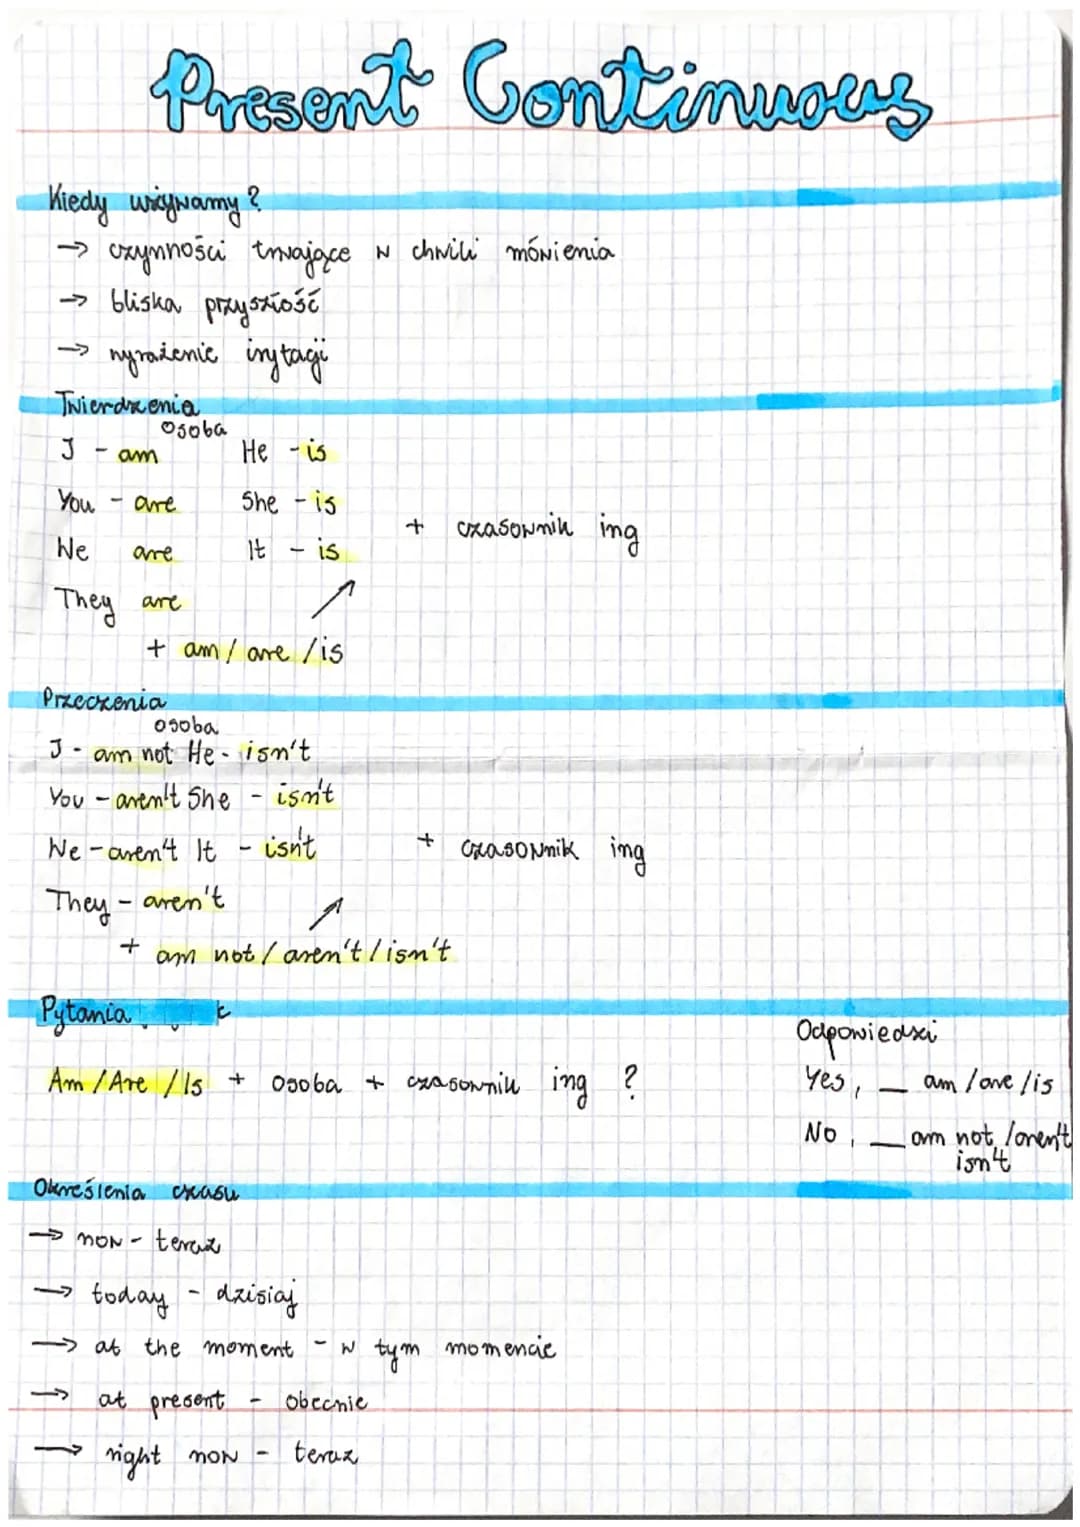 Present Continuous
Kiedy używamy?
→ czynności trwające w chwili mówienia
→ bliska przyszłość
→ wyrażenie irytacji
Twierdzenia
osoba
I - am He - is
You - are She - is
We are It - is
+ czasownik ing
They are
+ am / are / is
Przeczenia
osoba
I - am not He - isn't
You - aren't She - isn't
We - aren't It - isn't + czasownik ing
They - aren't
+ am not / aren't / isn't
Pytania
Am / Are / Is + osoba + czasownik ing ?
Odpowiedzi
Yes, _ am / are / is
No, _ am not / aren't
isn't
Określenia czasu
→ now - teraz
→ today - dzisiaj
→ at the moment - w tym momencie
→ at present - obecnie
→ right now - teraz